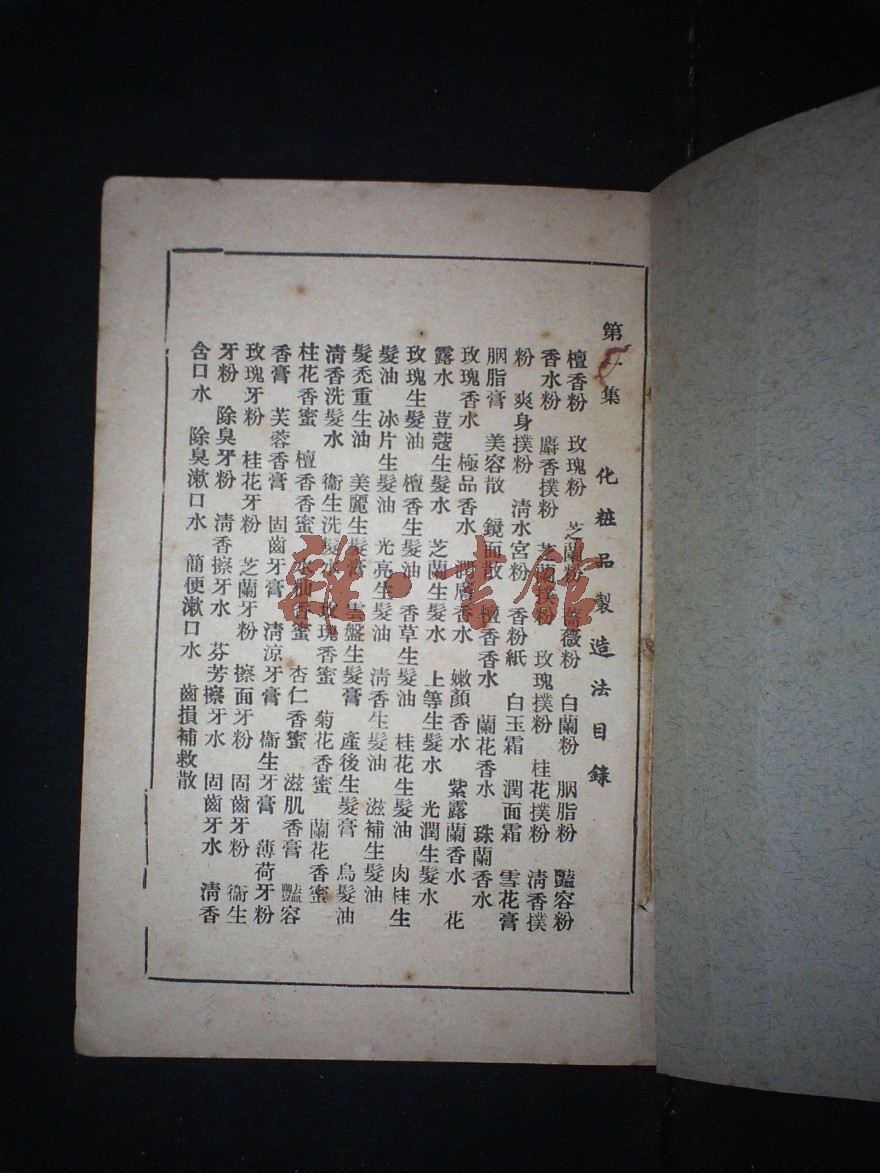 第一集　化粧品製造法目錄
檀香粉　玫瑰粉　芝蘭粉　薔薇粉　白蘭粉　胭脂粉　豔容粉
香水粉　麝香撲粉　芝蘭撲粉　玫瑰撲粉　桂花撲粉　清香撲
粉　爽身撲粉　清水宮粉　香粉紙　白玉霜　潤面霜　雪花膏
胭脂膏　美容散　鏡面散　檀香香水　蘭花香水　珠蘭香水
玫瑰香水　極品香水　潤膚香水　嫩顏香水　紫露蘭香水　花
露水　荳蔻生髮水　芝蘭生髮水　上等生髮水　光潤生髮水
玫瑰生髮油　檀香生髮油　香草生髮油　桂花生髮油　肉桂生
髮油　冰片生髮油　光亮生髮油　清香生髮油　滋補生髮油
髮禿重生油　美麗生髮膏　雲盤生髮膏　產後生髮膏　烏髮油
清香洗髮水　衞生洗髮水　玫瑰香蜜　菊花香蜜　蘭花香蜜
桂花香蜜　檀香香蜜　水仙香蜜　杏仁香蜜　滋肌香膏　豔容
香膏　芙蓉香膏　固齒牙膏　清涼牙膏　衞生牙膏　薄荷牙粉
玫瑰牙粉　桂花牙粉　芝蘭牙粉　擦面牙粉　固齒牙粉　衞生
牙粉　除臭牙粉　清香擦牙水　芬芳擦牙水　固齒牙水　清香
含口水　除臭漱口水　簡便漱口水　齒損補救散
雜·書館